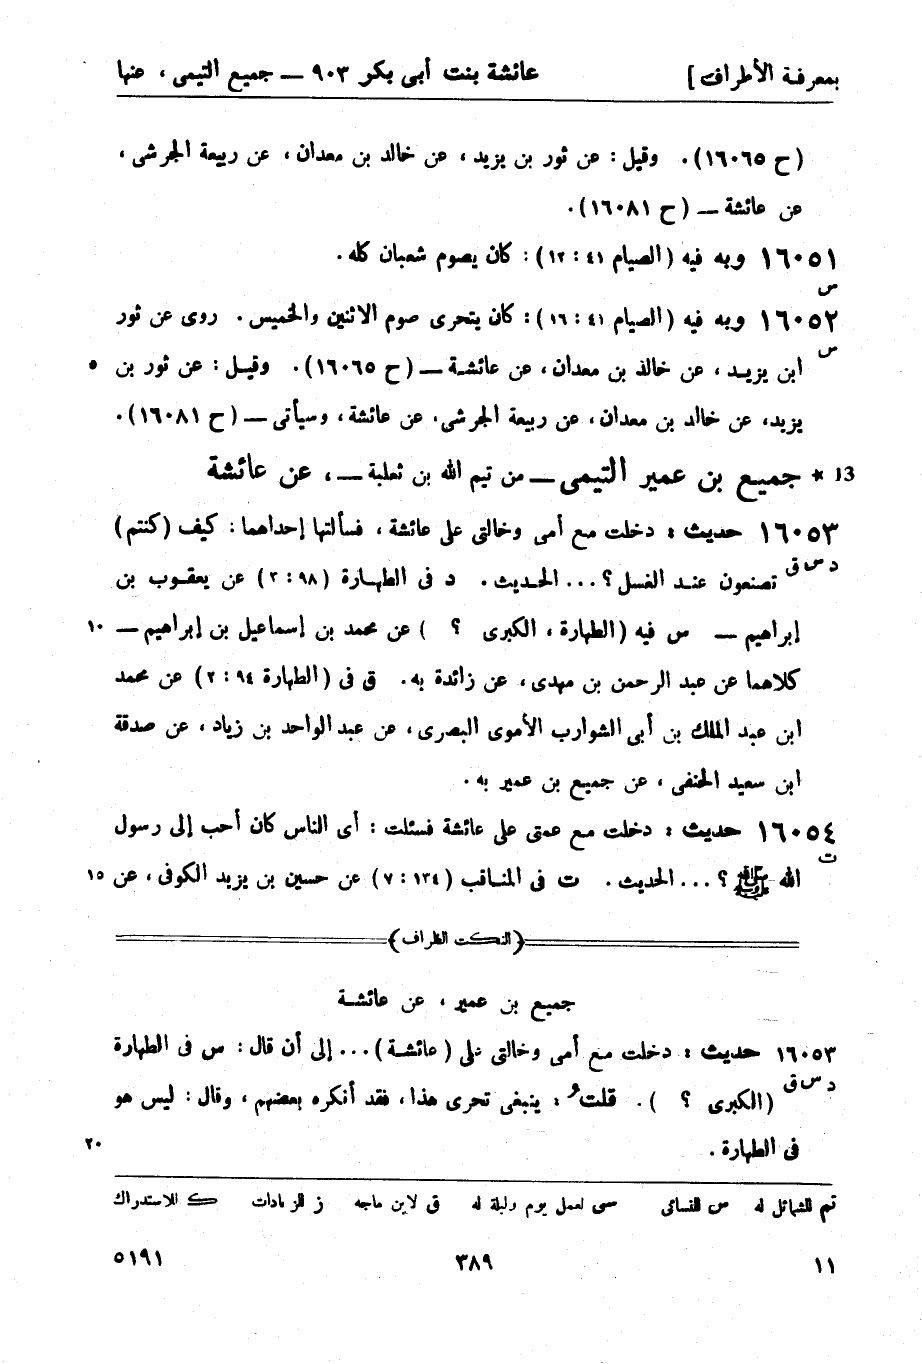 بمعرفة الأطراف] عائشة بنت أبى بكر ٩٠٣ — جميع التيمى ، عنها
(ح ١٦٠٦٥) . وقيل : عن ثور بن يزيد ، عن خالد بن معدان ، عن ربيعة الجرشى ،
عن عائشة — (ح ١٦٠٨١) .
١٦٠٥١ وبه فيه (الصيام ٤١ : ١٢) : كان يصوم شعبان كله .
س
١٦٠٥٢ وبه فيه (الصيام ٤١ : ١٦) : كان يتحرى صوم الاثنين والخميس . روى عن ثور
س
ابن يزيد ، عن خالد بن معدان ، عن عائشة — (ح ١٦٠٦٥) . وقيل : عن ثور بن ٥
يزيد، عن خالد بن معدان ، عن ربيعة الجرشى ، عن عائشة ، وسيأتى — (ح ١٦٠٨١) .
13 * جميع بن عمير التيمى — من تيم الله بن ثعلبة — ، عن عائشة
١٦٠٥٣ حديث : دخلت مع أمى وخالتى على عائشة ، فسألتها إحداهما : كيف (كنتم)
د س ق
تصنعون عند الغسل ؟ ... الحديث . د فى الطهارة (٩٨ : ٢) عن يعقوب بن
إبراهيم — س فيه (الطهارة ، الكبرى ؟ ) عن محمد بن إسماعيل بن إبراهيم — ١٠
كلاهما عن عبد الرحمن بن مهدى ، عن زائدة به . ق فى (الطهارة ٩٤ : ٢) عن محمد
ابن عبد الملك بن أبى الشوارب الأموى البصرى ، عن عبد الواحد بن زياد ، عن صدقة
ابن سعيد الحنفى ، عن جميع بن عمير به .
١٦٠٥٤ حديث : دخلت مع عمتى على عائشة فسئلت : أى الناس كان أحب إلى رسول
ت
الله ﷺ ؟ ... الحديث . ت فى المناقب (١٣٤ : ٧) عن حسين بن يزيد الكوفى ، عن ١٥
(النكت الظراف)
جميع بن عمير ، عن عائشة
١٦٠٥٣ حديث : دخلت مع أمى وخالتى على (عائشة) ... إلى أن قال : س فى الطهارة
د س ق
(الكبرى ؟ ) . قلتُ : ينبغى تحرى هذا ، فقد أنكره بعضهم ، وقال : ليس هو
فى الطهارة . ٢٠
تم للشمائل له س للنسائى سى لعمل يوم وليلة له ق لابن ماجه ز للزيادات ك للاستدراك
١١ ٣٨٩ ٥١٩١